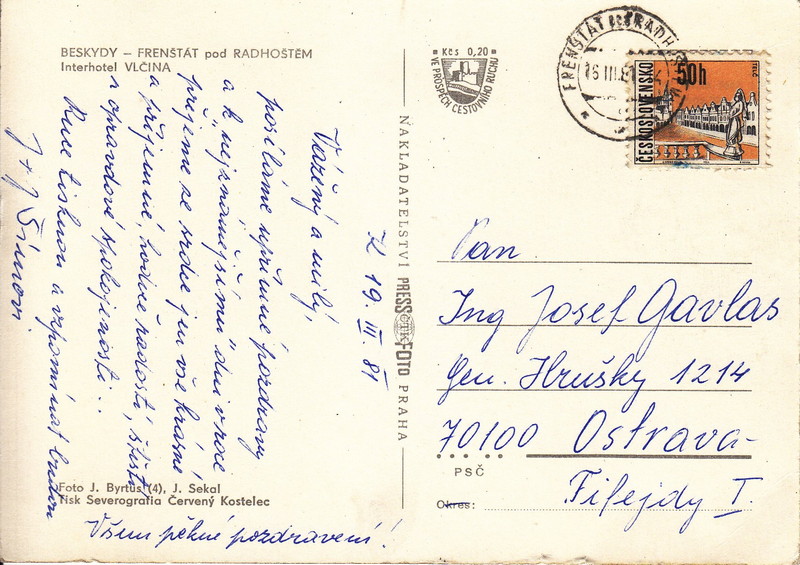 BESKYDY – FRENŠTÁT pod RADHOŠTĚM
Interhotel VLČINA
Kčs 0,20
VE PROSPĚCH CESTOVNÍHO RUCHU
FRENŠTÁT RADH
16 III.81
ČESKOSLOVENSKO
50h
TELČ
K 19. III. 81
Vážený a milý,
posíláme upřímné pozdravy
a k nejznámějšímu dni v roce
přejeme ze srdce jen vše krásné
a příjemné, hodně radosti, štěstí
a opravdové spokojenosti..
Ruce tisknou a vzpomínat budou
J + J Šimovi
Všem pěkné pozdravení!
NAKLADATELSTVÍ PRESSFOTO PRAHA
ČTK
Pan
Ing Josef Gavlas
Gen. Hrušky 1214
70100 Ostrava-
PSČ
Fifejdy I.
Okres:
Foto J. Byrtus (4), J. Sekal
Tisk Severografia Červený Kostelec